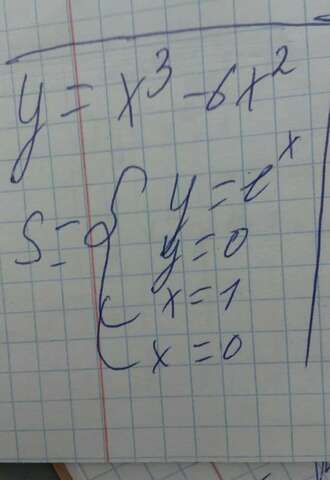 y = x³ - 6x²
S = { y = eˣ
y = 0
x = 1
x = 0